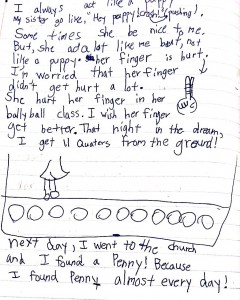 I always act like a puppy
My sister go like, "Hey puppy
Some times she be nice to me.
But, she act a lot like me but, not
like a puppy. her finger is hurt.
I'm worried that her finger
didn't get hurt a lot.
She hurt her finger in her
ballyball class. I wish her finger
get better. That night in the dream,
I get 11 Quaters from the ground!
next day, I went to the church
and I found a Penny! Because
I found Penny almost every day!